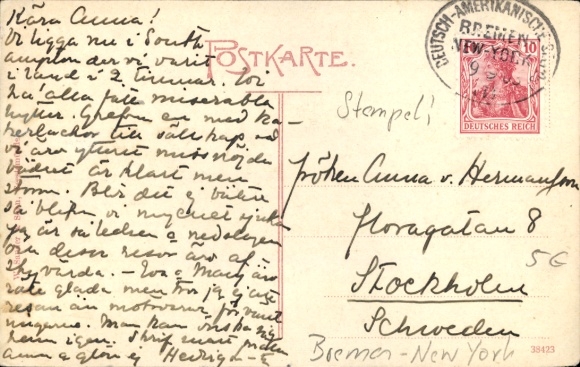 Kära Anna!
Vi ligga nu i South
ampton der vi varit
i land i 2 timmar. Vi
ha alla fått miserabla
hytter. Grefven en med ka
kerlackor till sällskap så
vi äro ytterst missnöjda
vädret är klart men
storm. Blir det ej bättre
så blifva vi mycket sjuka
jag är så ledsen &
om dessa resor äro af
värda. — Eva & Mary äro
glada men tror jag ej
resan än
ungarne. Man kan önska sig
hem igen. Skrif snart
Anna & glöm ej Hedvig
POSTKARTE.
DEUTSCH-AMERIKANISCHE
BREMEN
NEW-YORK
10
DEUTSCHES REICH
Stempel!
Fröken Anna v. Hermansson
Floragatan 8
5G
Stockholm
Schweden
Bremen - New York
38423